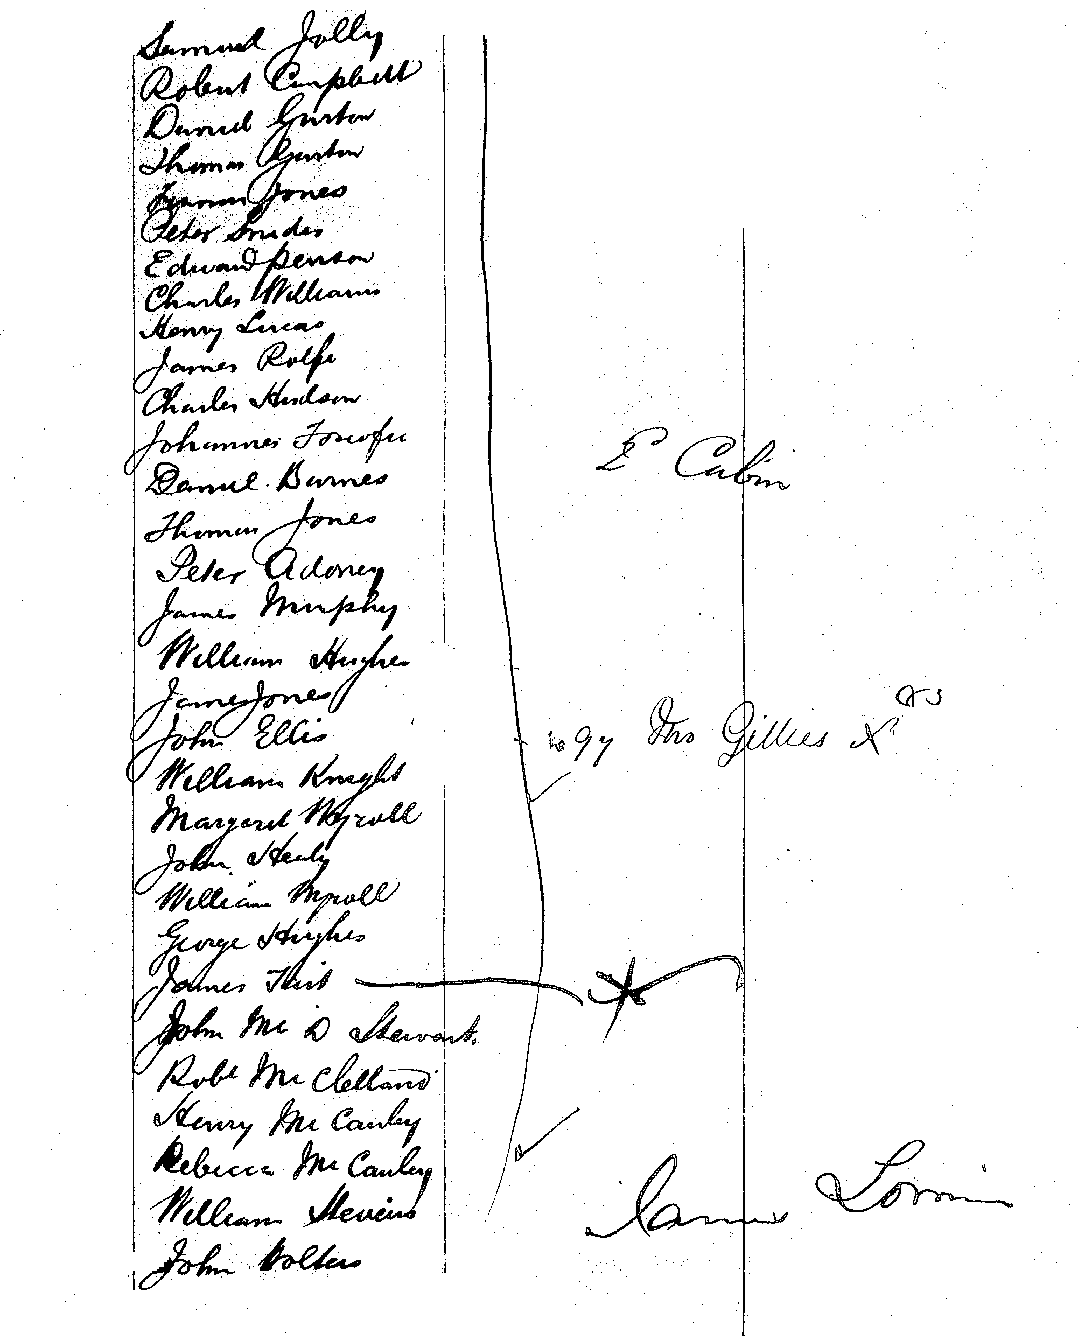 Samuel Jolly
Robert Campbell
Daniel Gurton
Thomas Gurton
James Jones
Peter Snider
Edward Penson
Charles Williams
Henry Lucas
James Rolfe
Charles Hudson
Johannes
Daniel Burnes
Thomas Jones
Peter Adoney
E Cabin
James Murphy
William Hughes
James Jones
John Ellis
97 Mrs Gillies X
William Knight
Margaret Myroll
John Healy
William Myroll
George Hughes
James
John Mc D Stewart
Robt McClelland
Henry McCauley
Rebecca McCauley
William Stevens
James
John Wolters